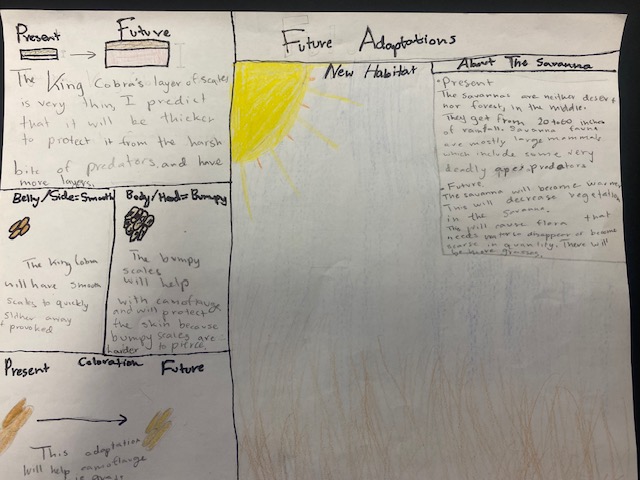 Present
Future
The King Cobra's layer of scales
is very thin, I predict
that it will be thicker
to protect it from the harsh
bite of predators, and have
more layers.
Belly/Side=Smooth
The King Cobra
will have smooth
scales to quickly
slither away
provoked
Body/Head=Bumpy
The bumpy
scales
will help
with camoflauge
and will protect
the skin because
bumpy scales are
harder to pierce.
Coloration
Present
Future
This adaptation
will help camoflauge
Future Adaptations
New Habitat
About The Savanna
•Present
The Savannas are neither desert
nor forest, in the middle.
They get from 20 to 60 inches
of rainfall. Savanna fauna
are mostly large mammals
which include some very
deadly apex predators
•Future
The savanna will become warmer
This will decrease vegetation
in the Savanna.
This will cause flora that
needs water to disappear or become
scarse in quantity. There will
be more grasses.